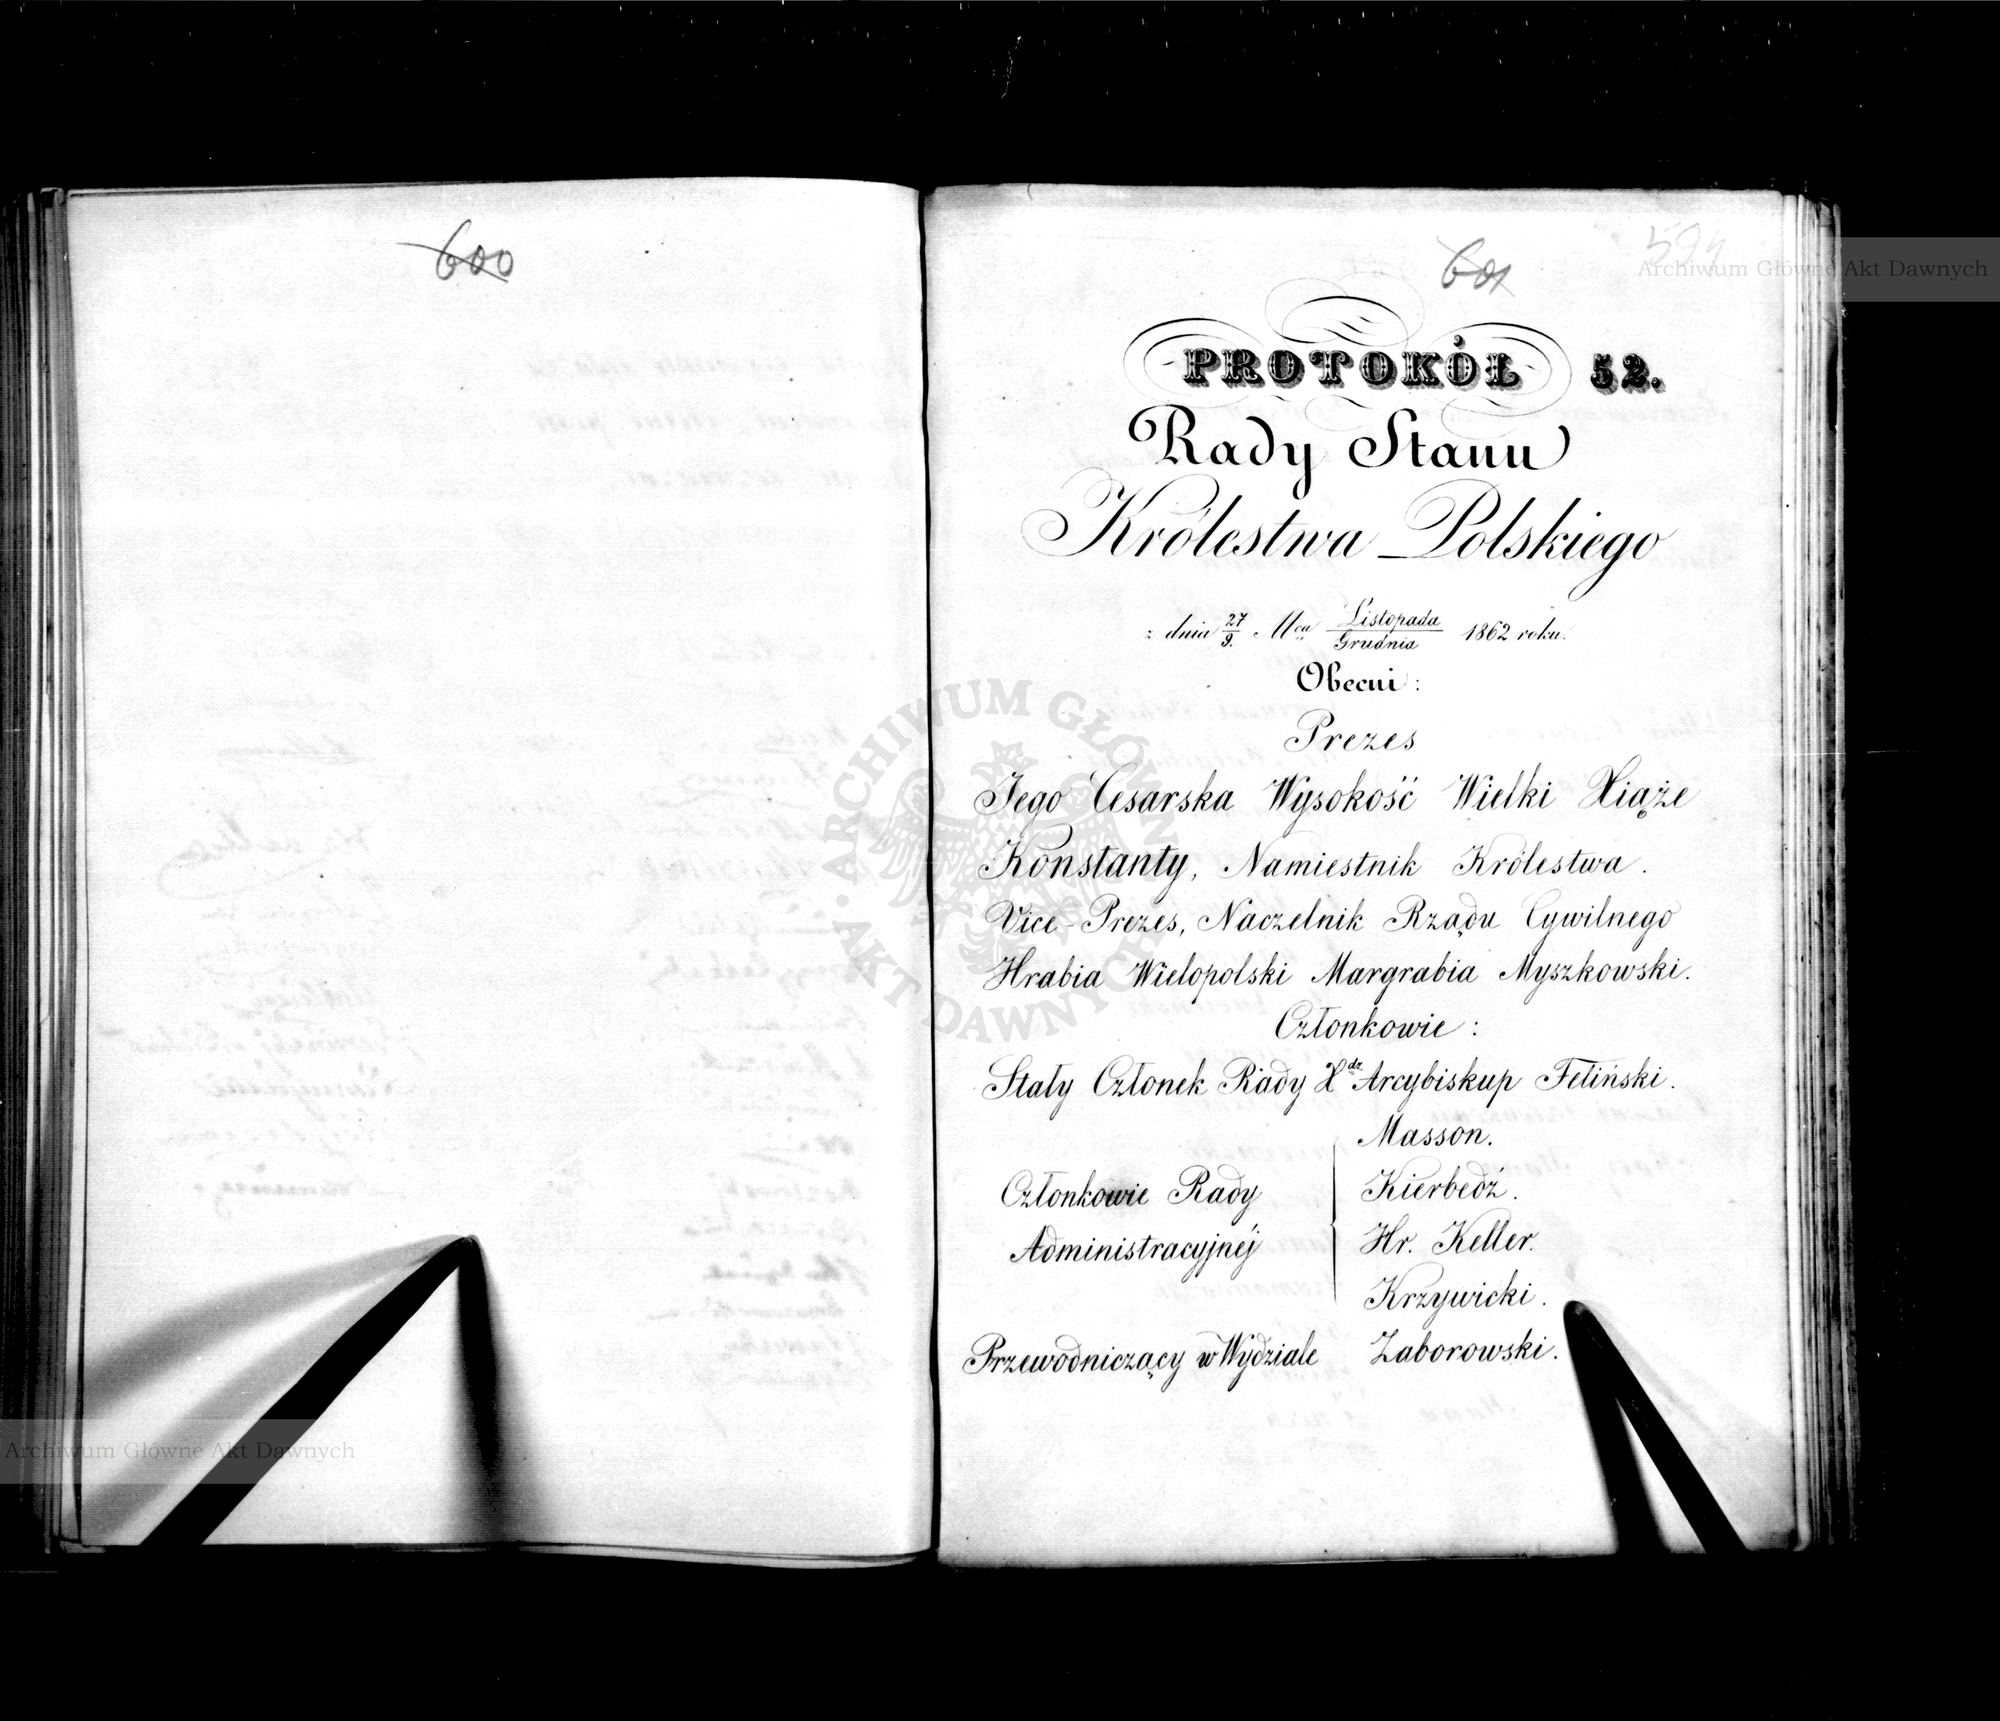 600
601
594
Archiwum Główne Akt Dawnych
PROTOKÓŁ 52.
Rady Stanu
Królestwa Polskiego
z dnia 27/9. Mca Listopada/Grudnia 1862 roku.
Obecni:
Prezes
Jego Cesarska Wysokość Wielki Xiąże
Konstanty, Namiestnik Królestwa.
Vice-Prezes, Naczelnik Rządu Cywilnego
Hrabia Wielopolski Margrabia Myszkowski.
Członkowie:
Stały Członek Rady Xdz Arcybiskup Feliński.
Członkowie Rady Administracyjnéj
Masson.
Kierbedź.
Hr. Keller.
Krzywicki.
Przewodniczący w Wydziale Zaborowski.
ARCHIWUM GŁÓWNE AKT DAWNYCH
Archiwum Główne Akt Dawnych